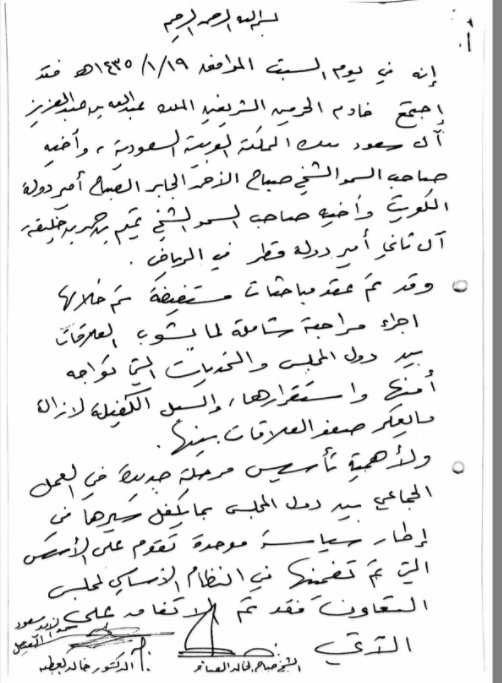 بسم الله الرحمن الرحيم
إنه في يوم السبت الموافق ١٤٣٥/١/١٩هـ فقد
إجتمع خادم الحرمين الشريفين الملك عبدالله بن عبدالعزيز
آل سعود ملك المملكة العربية السعودية ، وأخيه
صاحب السمو الشيخ صباح الأحمد الجابر الصباح أمير دولة
الكويت وأخيه صاحب السمو الشيخ تميم بن حمد بن خليفة
آل ثاني أمير دولة قطر في الرياض .
وقد تم عقد مباحثات مستفيضة تم خلالها
اجراء مراجعة شاملة لما يشوب العلاقات
بين دول المجلس والتحديات التي تواجه
أمنها واستقرارها، والسبل الكفيلة لازالة
مايعكر صفو العلاقات بينها .
ولأهمية تأسيس مرحلة جديدة في العمل
الجماعي بين دول المجلس بما يكفل سيرها في
إطار سياسة موحدة تقوم على الأسس
التي تم تضمنها في النظام الأساسي لمجلس
التعاون فقد تم الاتفاق على
الآتي
سعود الفيصل
الشيخ صباح الخالد الصباح
الدكتور خالد العطية